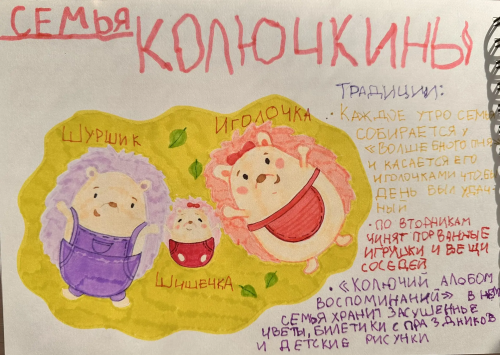 СЕМЬЯ
КОЛЮЧКИНЫ
ТРАДИЦИИ:
ШУРШИК
ИГОЛОЧКА
ШИШЕЧКА
• КАЖДОЕ УТРО СЕМЬЯ
СОБИРАЕТСЯ У
«ВОЛШЕБНОГО ПНЯ
И КАСАЕТСЯ ЕГО
ИГОЛОЧКАМИ ЧТОБЫ
ДЕНЬ БЫЛ УДАЧ
НЫЙ
• ПО ВТОРНИКАМ
ЧИНЯТ ПОРВАННЫЕ
ИГРУШКИ И ВЕЩИ
СОСЕДЕЙ
• «КОЛЮЧИЙ АЛЬБОМ
ВОСПОМИНАНИЙ» В НЕМ
СЕМЬЯ ХРАНИТ ЗАСУШЕННЫЕ
ЦВЕТЫ, БИЛЕТИКИ С ПРАЗДНИКОВ
И ДЕТСКИЕ РИСУНКИ